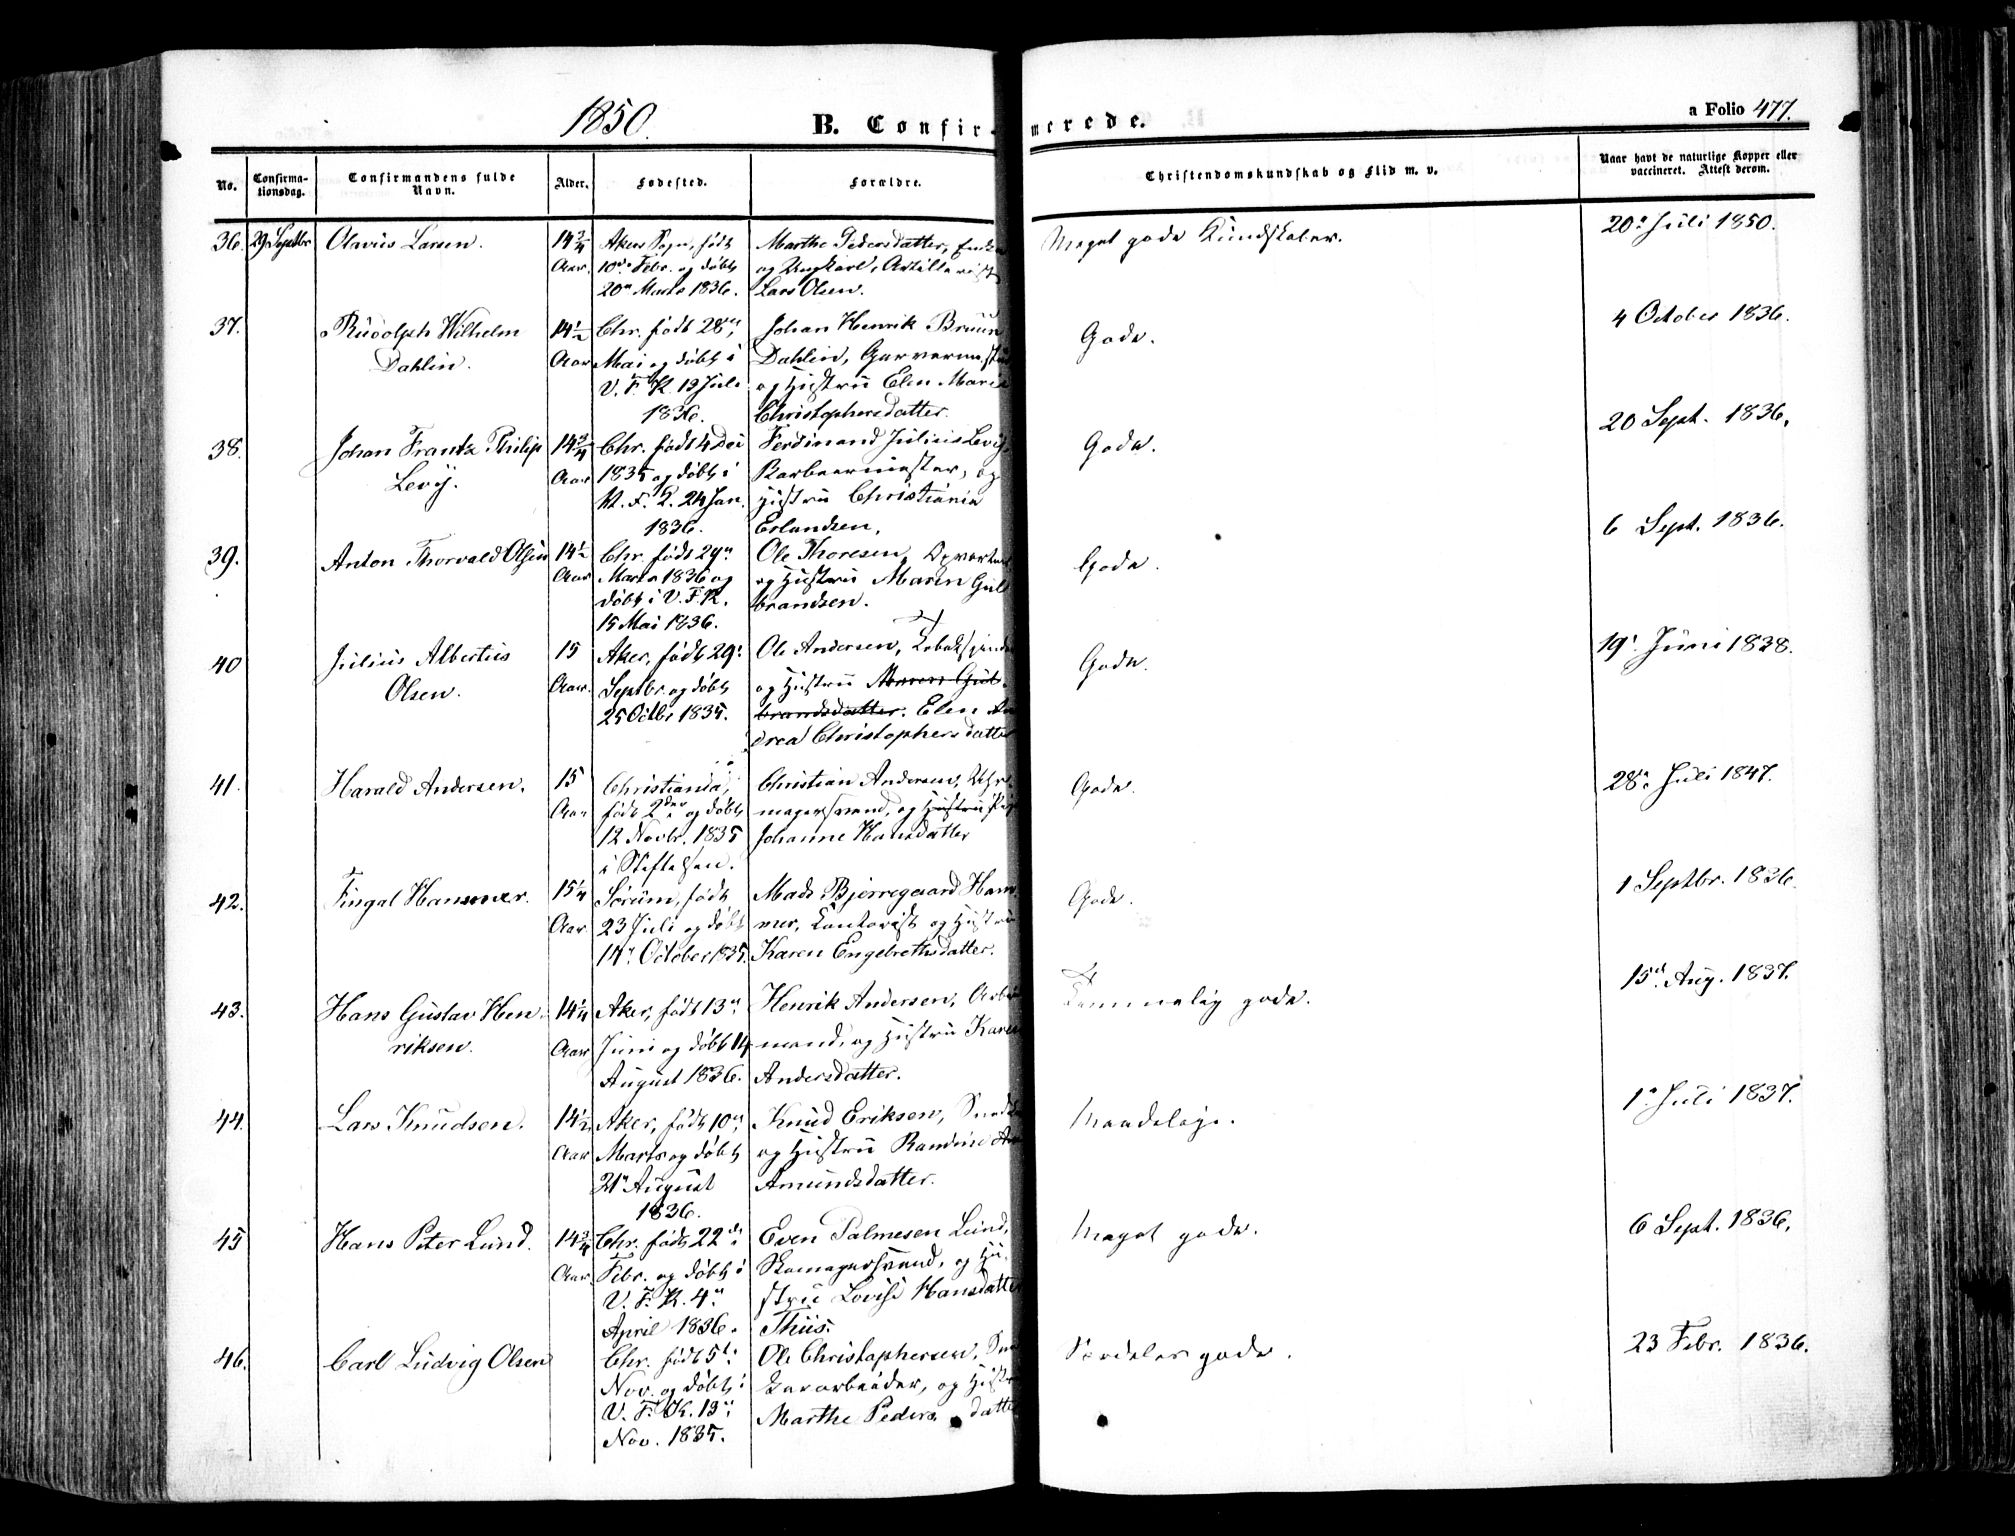 1850. B. Confirmerede. a Folio 477.
No. Confirmationsdag. Confirmandens fulde Navn. Alder. Fødested. Forældre. Christendomskundskab og Flid m. v. Naar havt de naturlige Kopper eller vaccineret. Attest derom.
36. 29 Septbr Olavus Larsen. 14 3/4 Aker Sogn, født Marthe Pedersdatter, Enke Meget gode Kundskaber. 20de Juli 1850.
Aar. 10de Febr. og døbt og Ungkarl, Artillerist
20de Marts 1836. Lars Olsen.
37. Rudolph Wilhelm 14 1/2 Chr. født 28de Johan Henrik Bruun Gode. 4 October 1836.
Dahlin. Aar Mai og døbt i Dahlin, Garvermester
V. F. K. 13 Juli og Hustru Elen Marie
1836. Christophersdatter.
38. Johan Frantz Philip 14 3/4 Chr. født 4 Dec Ferdinand Julius Levy, Gode. 20 Sept. 1836.
Levy. Aar 1835 og døbt i Barbeermester, og
24 Jan. Hustru Christiania
1836. Erlandsen.
39. Anton Thorvald Olsen 14 1/2 Chr. født 29de Ole Thoresen, Opvarter Gode. 6 Sept. 1836.
Aar. Marts 1836 og og Hustru Maren Gul
døbt i V. F. K. brandsen.
15 Mai 1836.
40 Julius Albertus 15 Aker, født 29de Ole Andersen, Gode. 19de Juni 1838.
Olsen. Aar. Septbr. og døbt og Hustru Maren Gul
25 Octbr 1835. brandsdatter. Elen An
drea Christophersdatter
41. Harald Andersen. 15 Christiania, Christian Andersen, Uhr Gode. 28de Juli 1847.
Aar født 2den og døbt magersvend, og Hustru
12 Novbr. 1835 Johanne Hansdatter
i Stiftelsen.
42. Fingal Hammer. 15 1/4 Sørum, født Mads Bjerregaard Ham Gode. 1 Septbr. 1836.
Aar. 23 Juli og døbt mer, Contorist og Hustru
October 1835. Karen Engebrethsdatter.
43. Hans Gustav Hen 14 1/4 Aker, født 13de Henrik Andersen, Arbeids Temmelig gode. 15de Aug. 1837.
riksen. Aar Juni og døbt 14 mand, og Hustru Karen
August 1836. Andersdatter.
44. Lars Knudsen. 14 1/2 Aker, født 10de Knud Eriksen, Snedker Maadelige. 1ste Juli 1837.
Aar Marts og døbt og Hustru Randine
21de August Amundsdatter.
1836.
45 Hans Peter Lund. 14 3/4 Chr. født 22de Even Palmesen Lund, Meget gode. 6 Sept. 1836.
Aar. Febr. og døbt i Skomagersvend, og Hu
V. F. K. 4de stru Lovise Hansdatter
April 1836. Thiis.
46. Carl Ludvig Olsen Chr. født 5te Ole Christophersen, Særdeles gode. 23 Febr. 1836.
Nov. og døbt i og Hustru
V. F. K. 13de Marthe Pedersdatter
Nov. 1835.